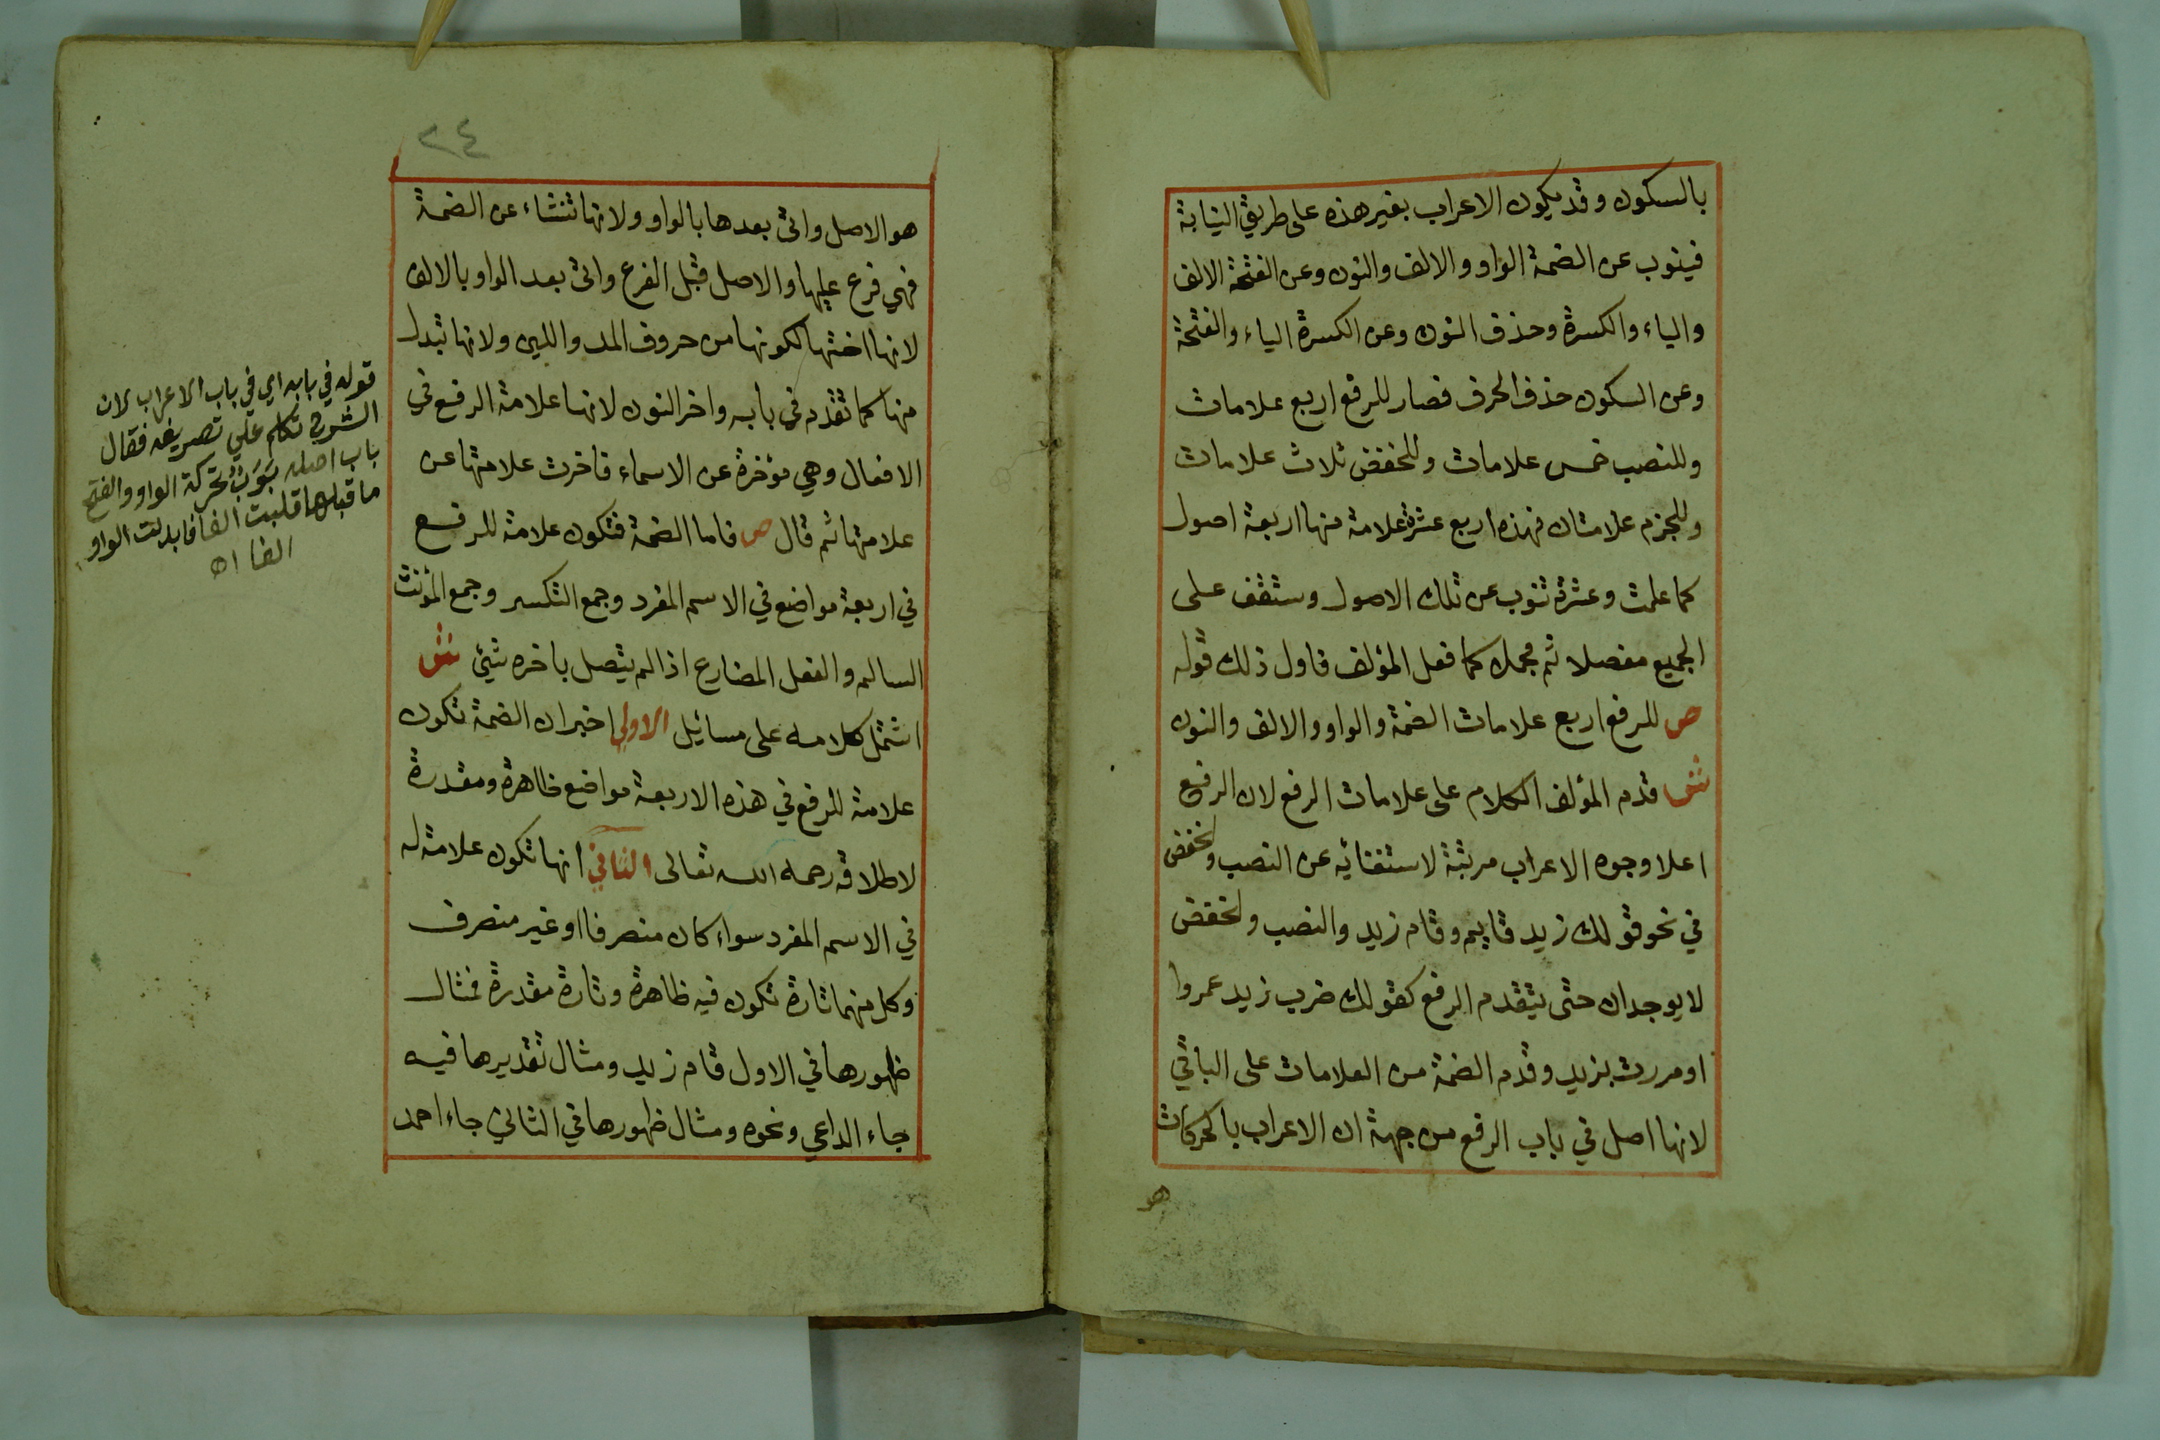 بالسكون وقد يكون الاعراب بغير هذه على طريق النيابة
فينوب عن الضمة الواو والالف والنون وعن الفتحة الالف
والياء والكسرة وحذف النون وعن الكسرة الياء والفتحة
وعن السكون حذف الحرف فصار للرفع اربع علامات
وللنصب خمس علامات وللخفض ثلاث علامات
وللجزم علامتان فهذه اربع عشرة علامة منها اربعة اصول
كما علمت وعشرة تنوب عن تلك الاصول وستقف على
الجميع مفصلا ثم مجملا كما فعل المؤلف فاول ذلك قوله
ص للرفع اربع علامات الضمة والواو والالف والنون
ش قدم المؤلف الكلام على علامات الرفع لان الرفع
اعلا وجوه الاعراب مرتبة لاستغنائه عن النصب والخفض
في نحو قولك زيد قايم وقام زيد والنصب والخفض
لا يوجدان حتى يتقدم الرفع كقولك ضرب زيد عمروا
او مررت بزيد وقدم الضمة من العلامات على الباقي
لانها اصل في باب الرفع من جهة ان الاعراب بالحركات
هو
٢٤
هو الاصل واتى بعدها بالواو ولانها تنشاء عن الضمة
فهي فرع عليها والاصل قبل الفرع واتى بعد الواو بالالف
لانها اختها لكونها من حروف المد واللين ولانها تبدل
منها كما تقدم في بابه واخر النون لانها علامة الرفع في
الافعال وهي مؤخرة عن الاسماء فاخرت علامتها عن
علامتها ثم قال ص فاما الضمة فتكون علامة للرفع
في اربعة مواضع في الاسم المفرد وجمع التكسير وجمع المؤنث
السالم والفعل المضارع اذا لم يتصل باخره شئ ش
اشتمل كلامه على مسائل الاولى اخبر ان الضمة تكون
علامة للرفع في هذه الاربعة مواضع ظاهرة ومقدرة
لاطلاقه رحمه الله تعالى الثاني انها تكون علامة له
في الاسم المفرد سواء كان منصرفا او غير منصرف
وكل منهما تارة تكون فيه ظاهرة وتارة مقدرة فمثال
ظهورها في الاول قام زيد ومثال تقديرها فيه
جاء الداعي ونحوه ومثال ظهورها في الثاني جاء احمد
قوله في بابه اي في باب الاعراب لان
الشرح تكلم على تصريفه فقال
باب اصله بَوَبٌ تحركة الواو والفتح
ما قبلها قلبت الفا فابدلت الواو
الفا اه